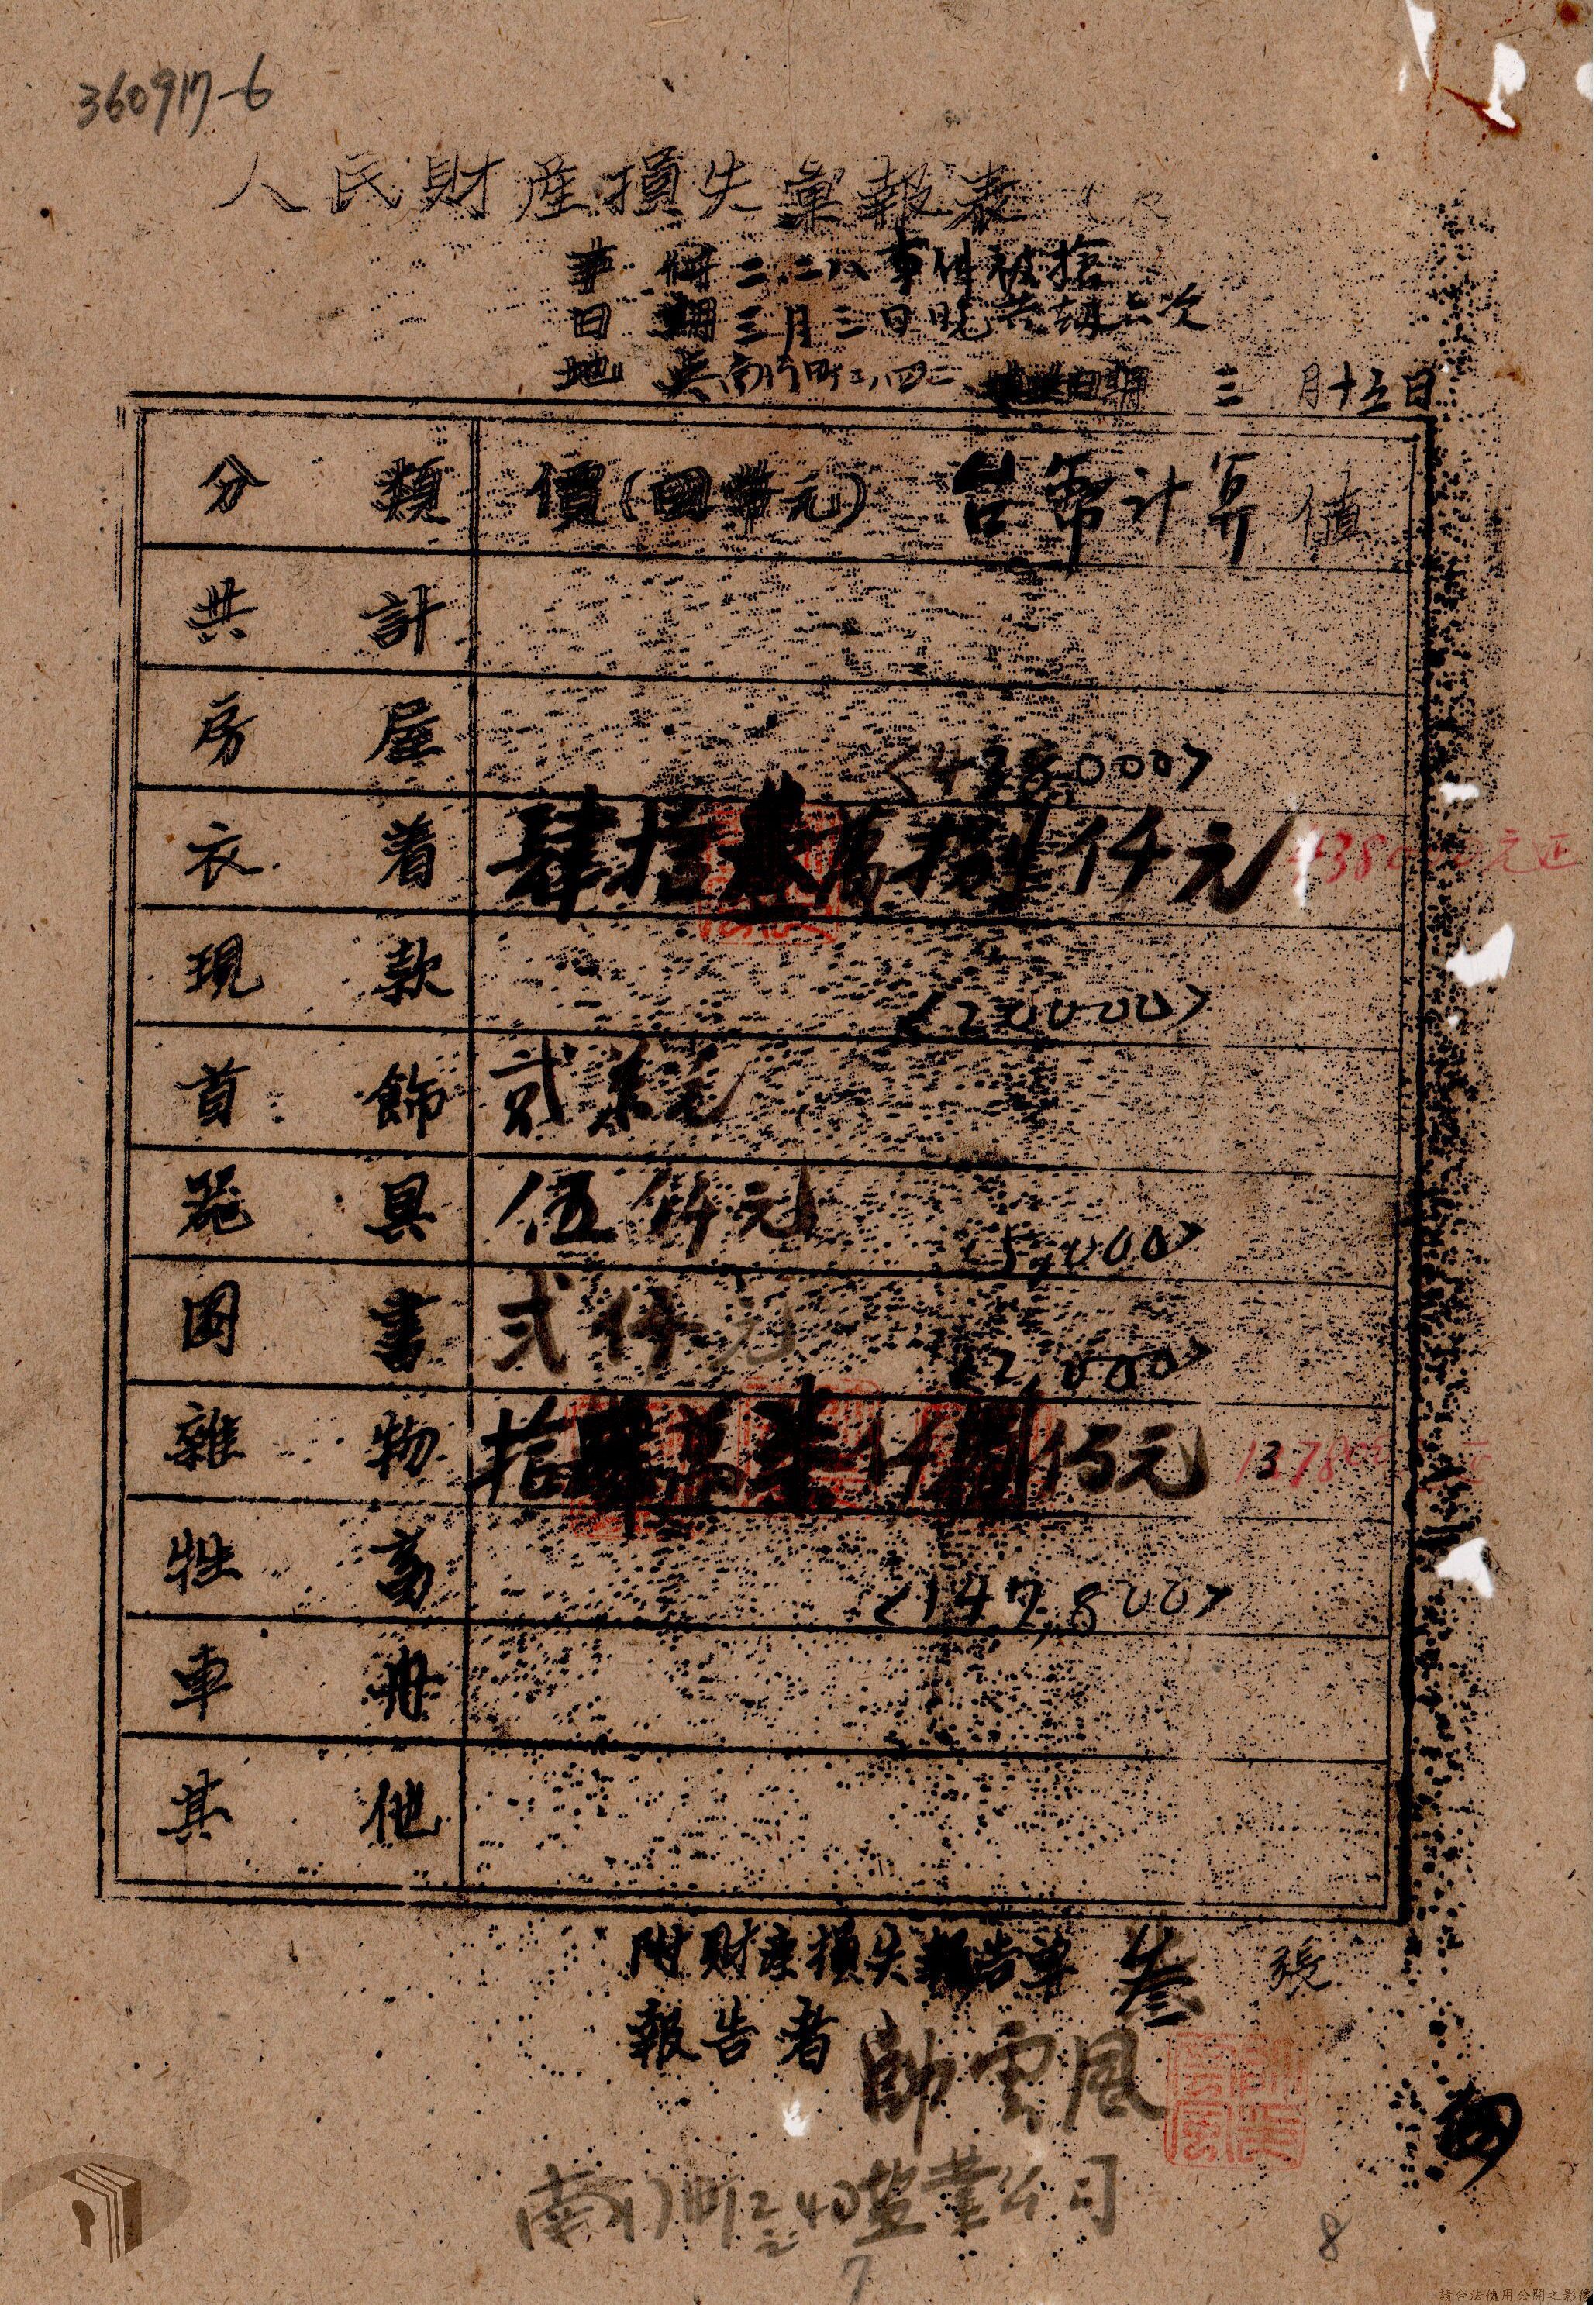 360917-6
人民財産損失彙報表
事件 二.二八事件被搶
日期 三月三日晚共劫六次
地点 南行町二ノ四 填送日期 三月十五日
分類 價(國幣元) 台幣計算 值
共計
房屋
<438,000>
衣着 肆拾叁萬捌仟元 438000元正
現款
<20000>
首飾 貳萬元
器具 伍仟元
<5,000>
図書 弍仟元
<2,000>
雜物 拾肆萬柒仟捌佰元
牲畜
<147,800>
車舟
其他
附財產損失報告單 叁 張
報告者 帥雲風
南行町 盐業公司
7
8
請合法使用公開之影像